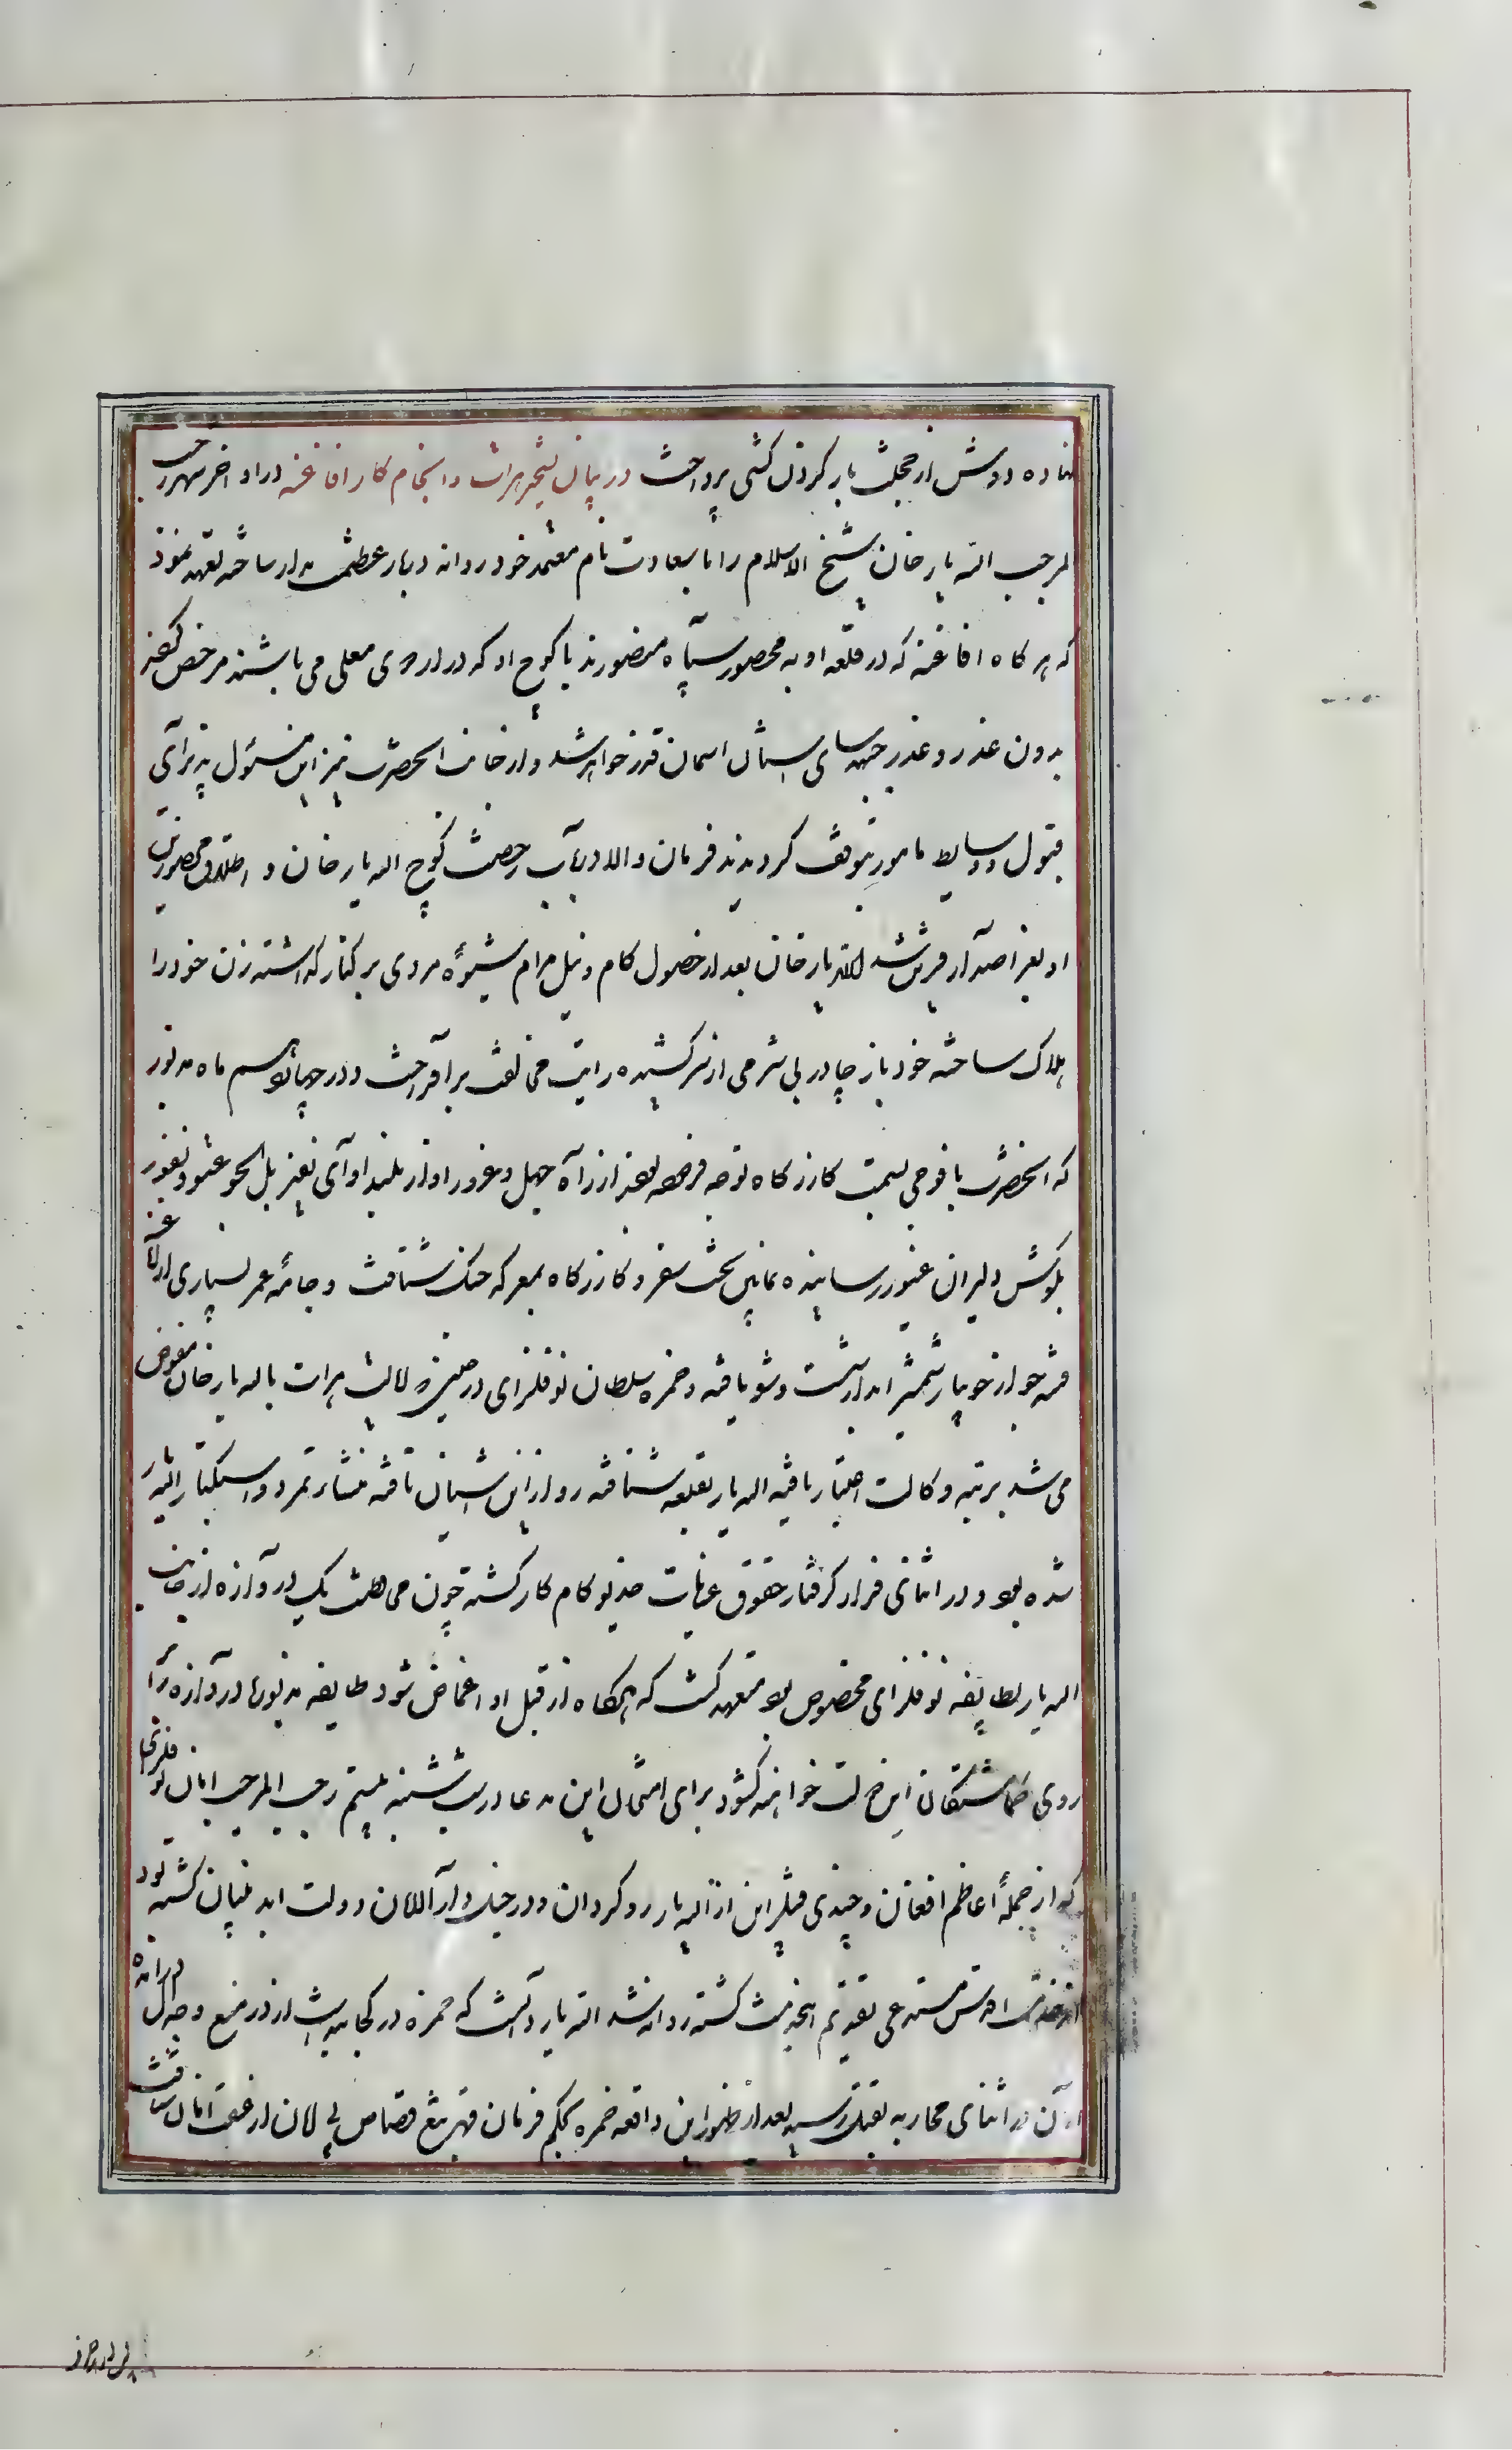 نهاده دوش از خجلت بار کردن کشی پرداخت در بیان تسخیر هرات و انجام کار افاغنه در اواخر شهر رجب
المرجب الله یار خان شیخ الاسلام را با سعادت نام معتمد خود روانه دربار عظمت مدار ساخته تعهد نمود
که هر گاه افاغنه که در قلعه اوبه محصور سپاه منصورند با کوچ او که در اردوی معلی می باشند مرخص کنند
بدون عذر و غدر جبهه سای استان اسمان قدر خواهد شد و از جانب انحضرت نیز این مسئول پذیرای
قبول و وسایط مامور بتوقف کردیدند فرمان والا در باب رخصت کوچ اله یار خان و اطلاق محصورین
او بعز اصدار قرین شد الله یار خان بعد از حصول کام و نیل مرام شیوهٔ مردی بر کنار گذاشته زن خود را
هلاک ساخته خود باز چادر بی شرمی از سر کشیده رایت مخالفت بر افراخت و در چهاردهم ماه مذبور
که انحضرت با فوجی بسمت کازرگاه توجه فرموده بودند از راه جهل و غرور اواز بلند اوای نفیر بل لجوا فی عتو و نفور
بگوش دلیران غیور رسانیده مابین تخت سفر و کازرگاه بمعرکه جنک شتافت و جامهٔ عمر بسیاری از افاغنه
فتنه جو از جویبار شمشیر ابدار شست و شو یافته و حمزه سلطان نوفلزای در حینی که ایالت هرات باله یار خان مفوض
می شد برتبه وکالت اختیار یافته اله یار بقلعه شتافته رو از این استان تافته منشاء تمرد و استکبار اله یار
شده بود و در اثنای فرار گرفتار حقوق عنایت خدیو کام کار گشته چون می دانست یک دروازه از جانب
اله یار بطایفه نوفلزای مخصوص بود متعهد گشت که هرگاه از قبل او اغماض شود طایفه مذبوره دروازه را
روی گماشتگان این دولت خواهند گشود برای امتثال این مدعا در شب ششنبه بیستم رجب المرجب امان نوفلزی
که از جملهٔ اعاظم افغان و چندی قبل از این از اله یار رو گردان و در جنک دار الامان دولت ابد بنیان گشته بود
از خدمت اقدس مستدعی تقدیم این خدمت گشته روانه شد اله یار دانست که حمزه در کجا هست از در منع و جدال درامده
امان در اثنای محاربه بقتل رسید بعد از ظهور این واقعه حمزه بحکم فرمان قهر بتیغ قصاص پی لان از عقب امان شتافت